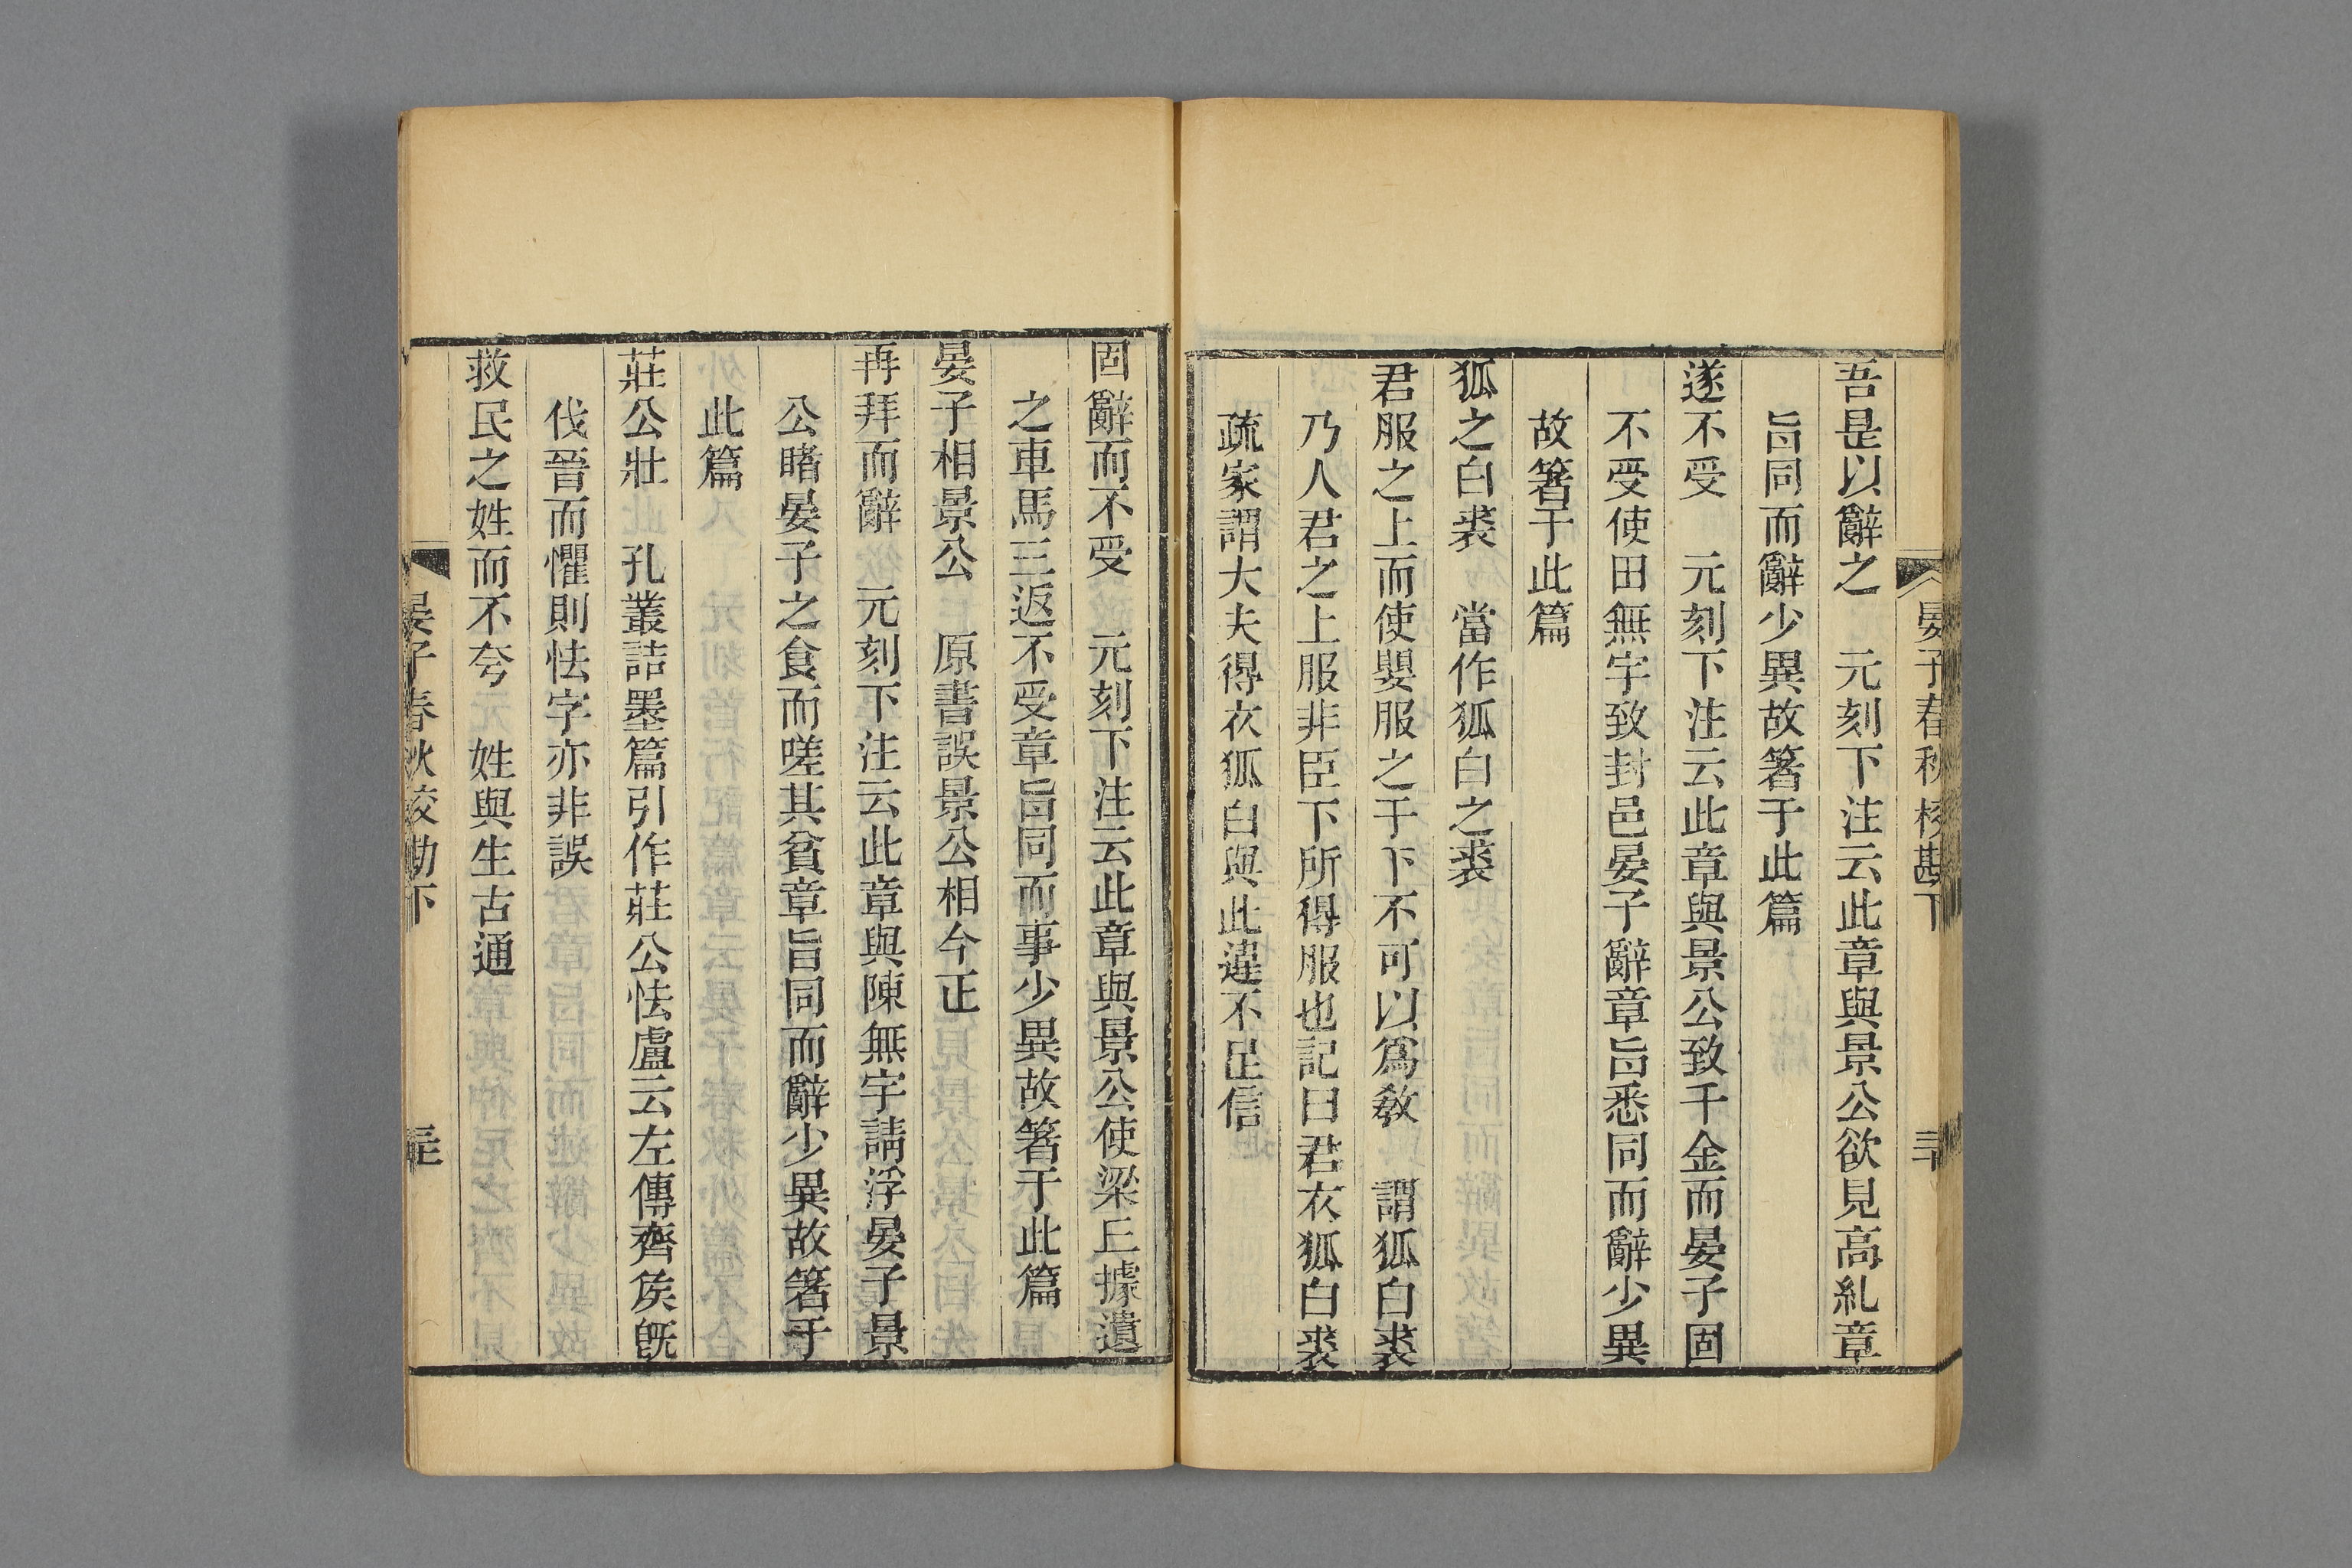 晏子春秋校勘下 三十
吾是以辭之 元刻下注云此章與景公欲見高糺章
旨同而辭少異故箸于此篇
遂不受 元刻下注云此章與景公致千金而晏子固
不受使田無宇致封邑晏子辭章旨悉同而辭少異
故箸于此篇
狐之白裘 當作狐白之裘
君服之上而使嬰服之于下不可以爲敎 謂狐白裘
乃人君之上服非臣下所得服也記曰君衣狐白裘
疏家謂大夫得衣狐白與此違不足信
固辭而不受 元刻下注云此章與景公使梁丘據遺
之車馬三返不受章旨同而事少異故箸于此篇
晏子相景公 原書誤景公相今正
再拜而辭 元刻下注云此章與陳無宇請浮晏子景
公睹晏子之食而嗟其貧章旨同而辭少異故箸于
此篇
莊公壯 孔叢詰墨篇引作莊公怯盧云左傳齊矦旣
伐晉而懼則怯字亦非誤
救民之姓而不夸 姓與生古通
晏子春秋校勘下